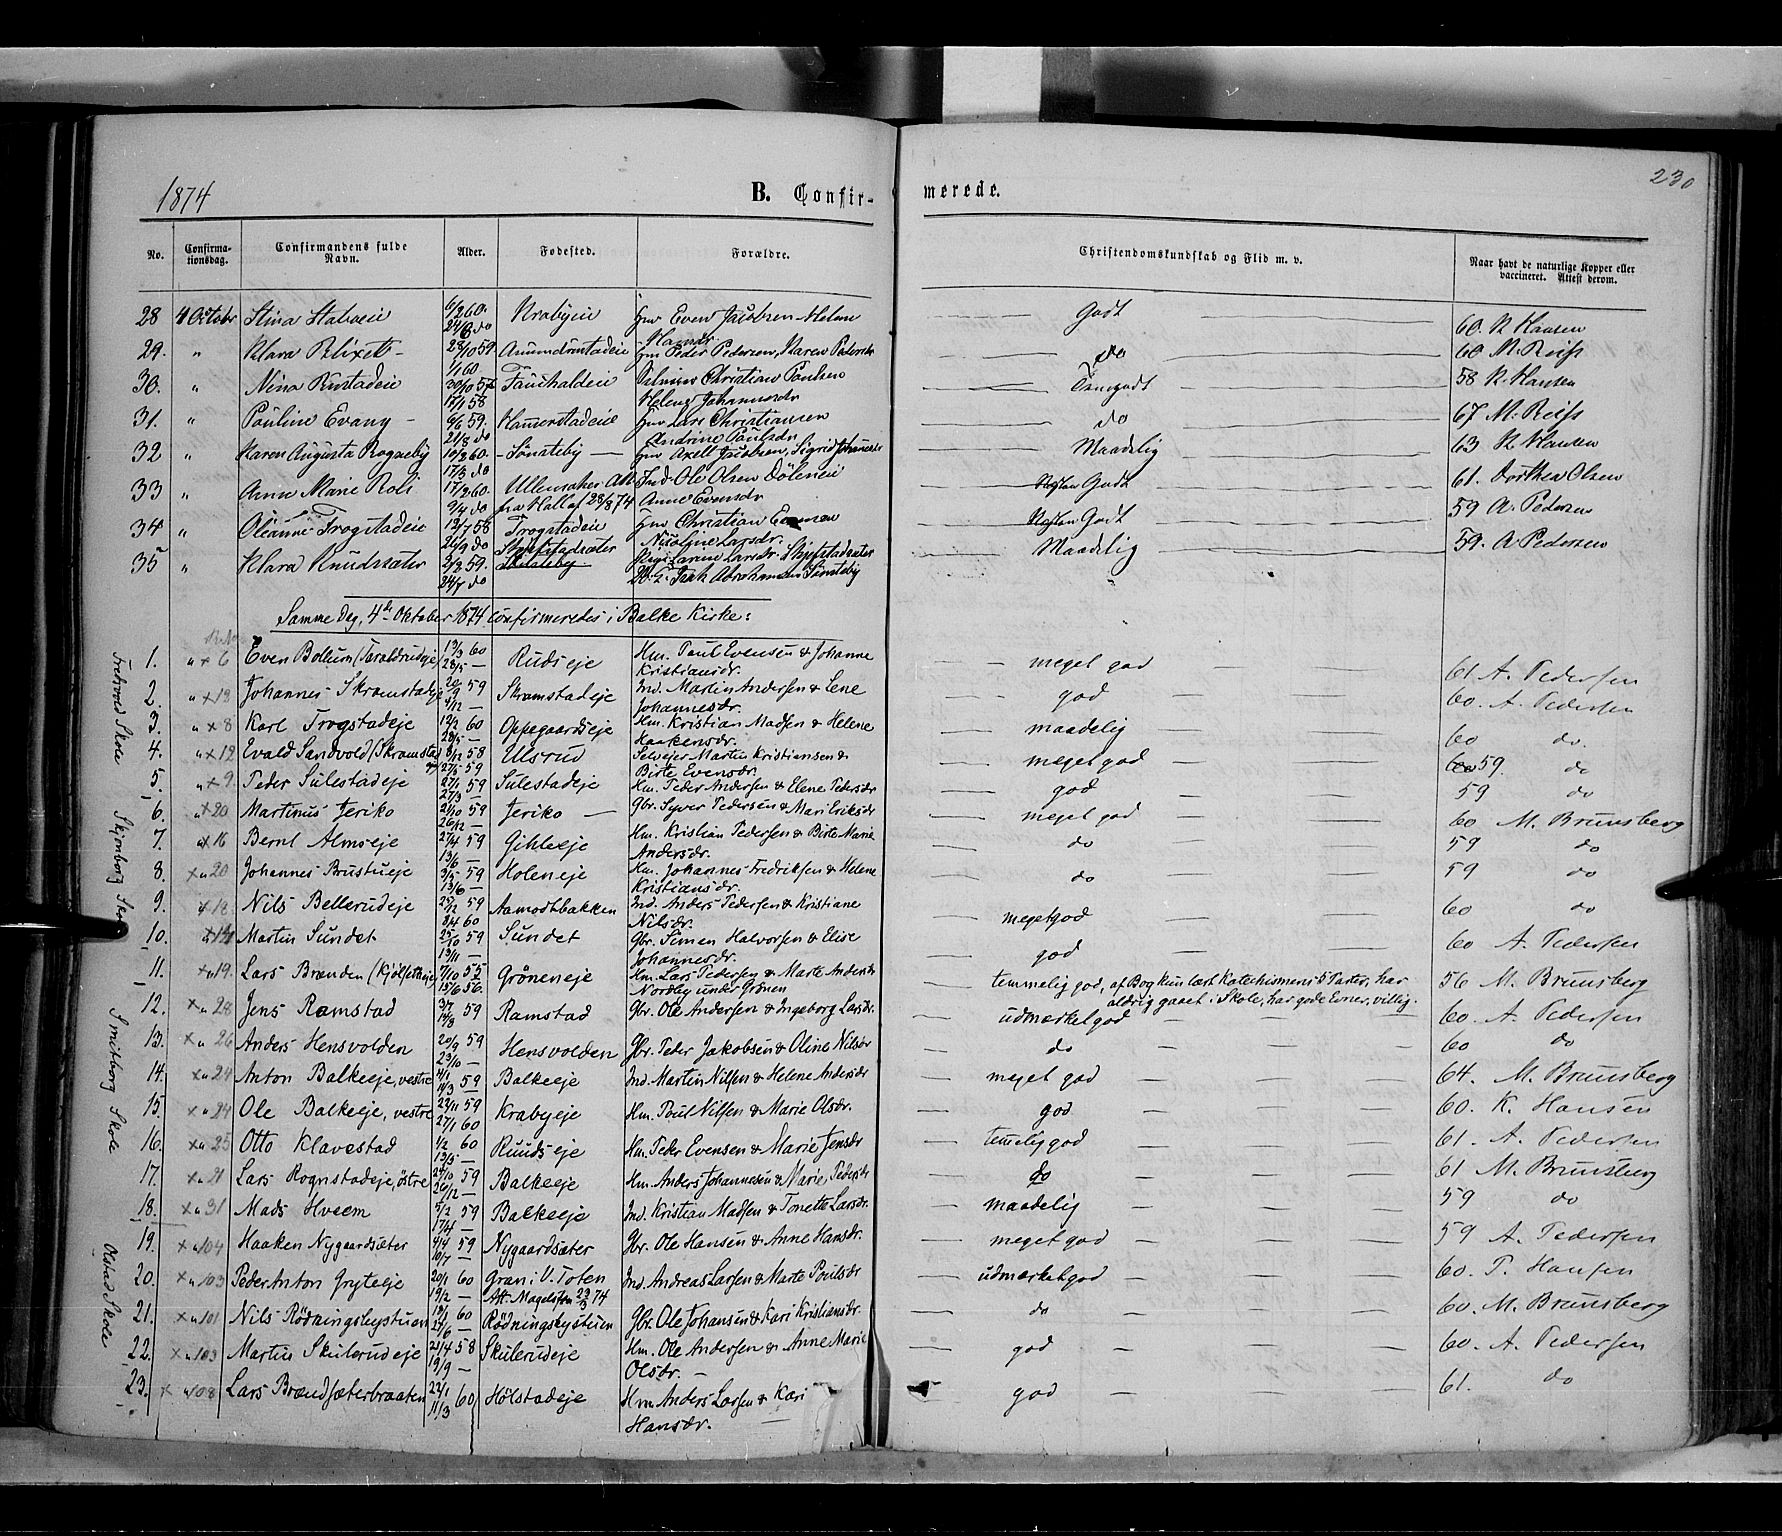 1874 B. Confirmerede. 230
No. Confirmationsdag. Confirmandens fulde Navn. Alder. Fødested. Forældre. Christendomskundskab og Flid m. v. Naar havt de naturlige Kopper eller vaccineret. Attest derom.
28 4 Octobr Stina 6/2 60. 24/3 do Krabyeie Hm Even Jacobsen Helene Godt 60. K Hansen
29. " Klara Blixet 28/10 59 1/1 60 Hm Peder Pedersen, Karen Pedersdr do 60 M. Reiss
30. " Nina Rustadeie Christian Paulsen Helene Johannesdr Temgodt 58 K. Hansen
31. " Pauline Evang 6/6 59. 21/8 do Hm Lars Christiansen Andrine Paulsdr do 67 M. Reiss
32 " Karen Augusta Rogneby 10/2 60. 17/3 do Sønsteby Hm Axell Jacobsen, Sigrid Johannesdr Maadelig 63 K Hansen
33 " Anne Marie Roli 17/2 60. 9/4 do Ullensaker Att. fra Hall af 28/8 74 Ind. Ole Olsen Døleneie Anne Evensdr Godt 61. Dorthea Olsen
34 " Oleanne Frogstadeie 12/7 58 26/9 do Frogstadeie Hm Christian Evensen Nicoline Larsdr. Næsten Godt 59 A. Pedersen
35 " Klara Knudsæter 2/2 59. 24/7 do Larine Larsdr. Isak Abrahamsen Sønsteby Maadelig 59. A Pedersen
Samme Dag, 4de Oktober 1874 confirmeredes i Balke Kirke:
1. " x 6 Even Bollum (Taraldrudeje) 19/3 60 28/5 — Rudseje Hm. Paul Evensen & Johanne Kristiansdr. meget god 61 A. Pedersen
2. " x 12 Johannes Skramstadeje 59 Skramstadeje Ind. Martin Andersen & Lene Johannesdr. god 60. A. Pedersen
3. " x 8 Karl Frogstadeje 12/2 60 28/5 — Oppegaardseje Hm. Kristian Madsen & Helene Haakensdr. maadelig 60 do.
4. " x 12 Evald Sandvold (Skramstad 8/12 58 27/5 59 Ulsrud Selvejer Martin Kristiansen & Birte Evensdr. meget god 59. do
5. " x 9 Peder Sulestadeje 27/1 59 27/3 — Sulestadeje Hm. Peder Andersen & Elene Pedersdr god 59 do
6. " x 20 Martinus Jeriko 21/10 59 26/12 — Jeriko — Gbr. Syver Pedersen & Mari Eriksdr meget god 60 M. Brunsberg
7. " x 16 Bernt Almseje 27/4 59 13/6 — Gihleeje Hm. Kristian Pedersen & Birte Marie Andersdr. do 59 do
8. x " 20 Johannes Brustueje 3/5 59 13/6 — Holeneje Hm. Johannes Fredriksen & Helene Kristiansdr. do 59 do
9. x 18 Nils Bellerudeje 25/12 59 8/4 60 Aamodtbakken Ind. Anders Pedersen & Kristiane Nilsdr. megetgod 60 do
10. Martin Sundet 25/10 59 13/11 — Sundet Gbr. Simen Halvorsen & Elise Johannesdr. god 60 A. Pedersen
11. x " 19. Lars Brænden 7/10 55 15/6 56. Grøneneje Hm. Lars Pedersen & Marte Andersdr Nordby under Grønen temmelig god, af Bog kun lært Katechismens 5 Parter, har aldrig gaaet i Skole, har gode Evner, villig. 56 M. Brunsberg
12. x " 28 Jens Ramstad 59 Ramstad Gbr. Ole Andersen & Ingeborg Larsdr. udmærketgod 60. A. Pedersen
13. x " 26 Anders Hensvolden 20/9 59 23/10 — Hensvolden Gbr. Peder Jakobsen & Oline Nilsdr do 60 do
14. x " 24 Anton Balkeeje, vestre 4/1 59 11/3 — Balkeeje Ind. Martin Nilsen & Helene Andersdr meget god 64. M. Brunsberg
15. x " 24 Ole Balkeeje, vestre 22/11 59 27/1 60 Krabyeje Hm. Poul Nilsen & Marie Olsdr. god 60. K. Hansen
16. x " 25 Otto Klavestad 1/2 60 13/5 — Ruudseje Hm. Peder Evensen & Marie Jensdr temeliggod 61. A. Pedersen
17. x " 21 Lars Rognstadeje, østre 24/10 59 26/12 — Balkeeje Hm. Anders Johannesen & Marie Pedersdr do 61 M. Brunsberg
18. x " 31 Mads Hveem 5/2 59 17/4 — Balkeeje Ind. Kristian Madsen & Tonette Larsdr. maadelig 59 do
19. x " 104 Haaken Nygaardsæter 4/4 59 10/7 — Nygaardsæter Gbr. Ole Hansen & Anne Hansdr. meget god 59 A. Pedersen
20. x " 103 Peder Anton Gryteeje 20/1 60 19/2 — Gran i V. Toten Att. Magelssen 74 Ind. Andreas Larsen & Marte Poulsdr udmærketgod 60. P. Hansen
21. x " 101 Nils Rødningsbystuen 60 Rødningsbystuen Gbr. Ole Johansen & Kari Kristiansdr. do 60. M. Brunsberg
22. x " 103 Martin Skulerudeje 21/4 58 19/9 — Skulerudeje Hm. Ole Andersen & Anne Marie Olsdr. — god 60. A. Pedersen
23. x " 108 Lars Brændsæterbraaten 22/1 60 11/3 Hølstadeje Hm Anders Larsen & Kari Hansdr. — god 61. do
Skole
Skjønborg Skole
Smeborg Skole
Olstad Skole